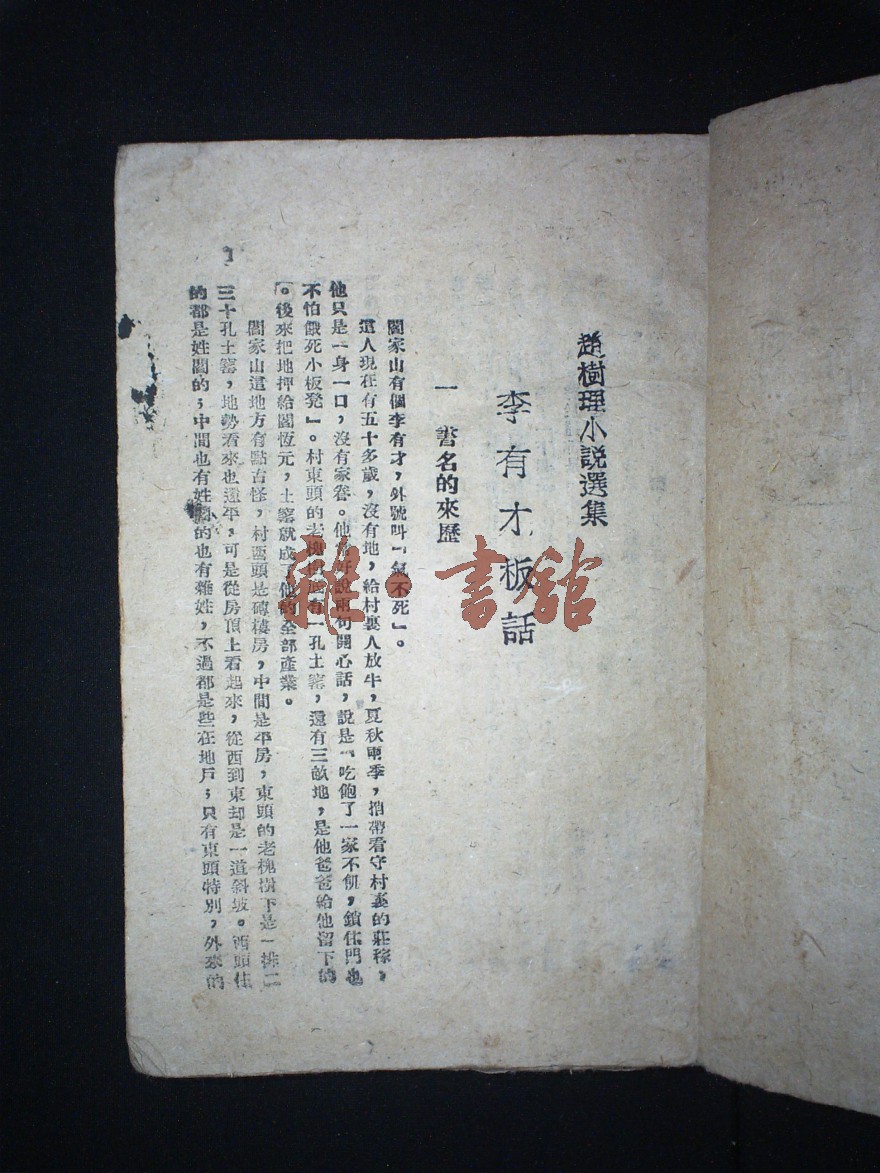 趙樹理小說選集
李有才板話
一 書名的來歷
閻家山有個李有才,外號叫「氣不死」。
這人現在有五十多歲,沒有地,給村裏人放牛,夏秋兩季,捎帶看守村裏的莊稼,
他只是一身一口,沒有家眷。他常好說兩句開心話,說是「吃飽了一家不飢,鎖住門也
不怕餓死小板凳」。村東頭的老槐樹底有一孔土窰,還有三畝地,是他爸爸給他留下的
。後來把地押給閻恆元,土窰就成了他的全部產業。
閻家山這地方有點古怪,村西頭是磚樓房,中間是平房,東頭的老槐樹下是一排二
三十孔土窰,地勢看來也還平,可是從房頂上看起來,從西到東却是一道斜坡。西頭住
的都是姓閻的;中間也有姓閻的也有雜姓,不過都是些在地戶;只有東頭特別,外來的
雜·書館